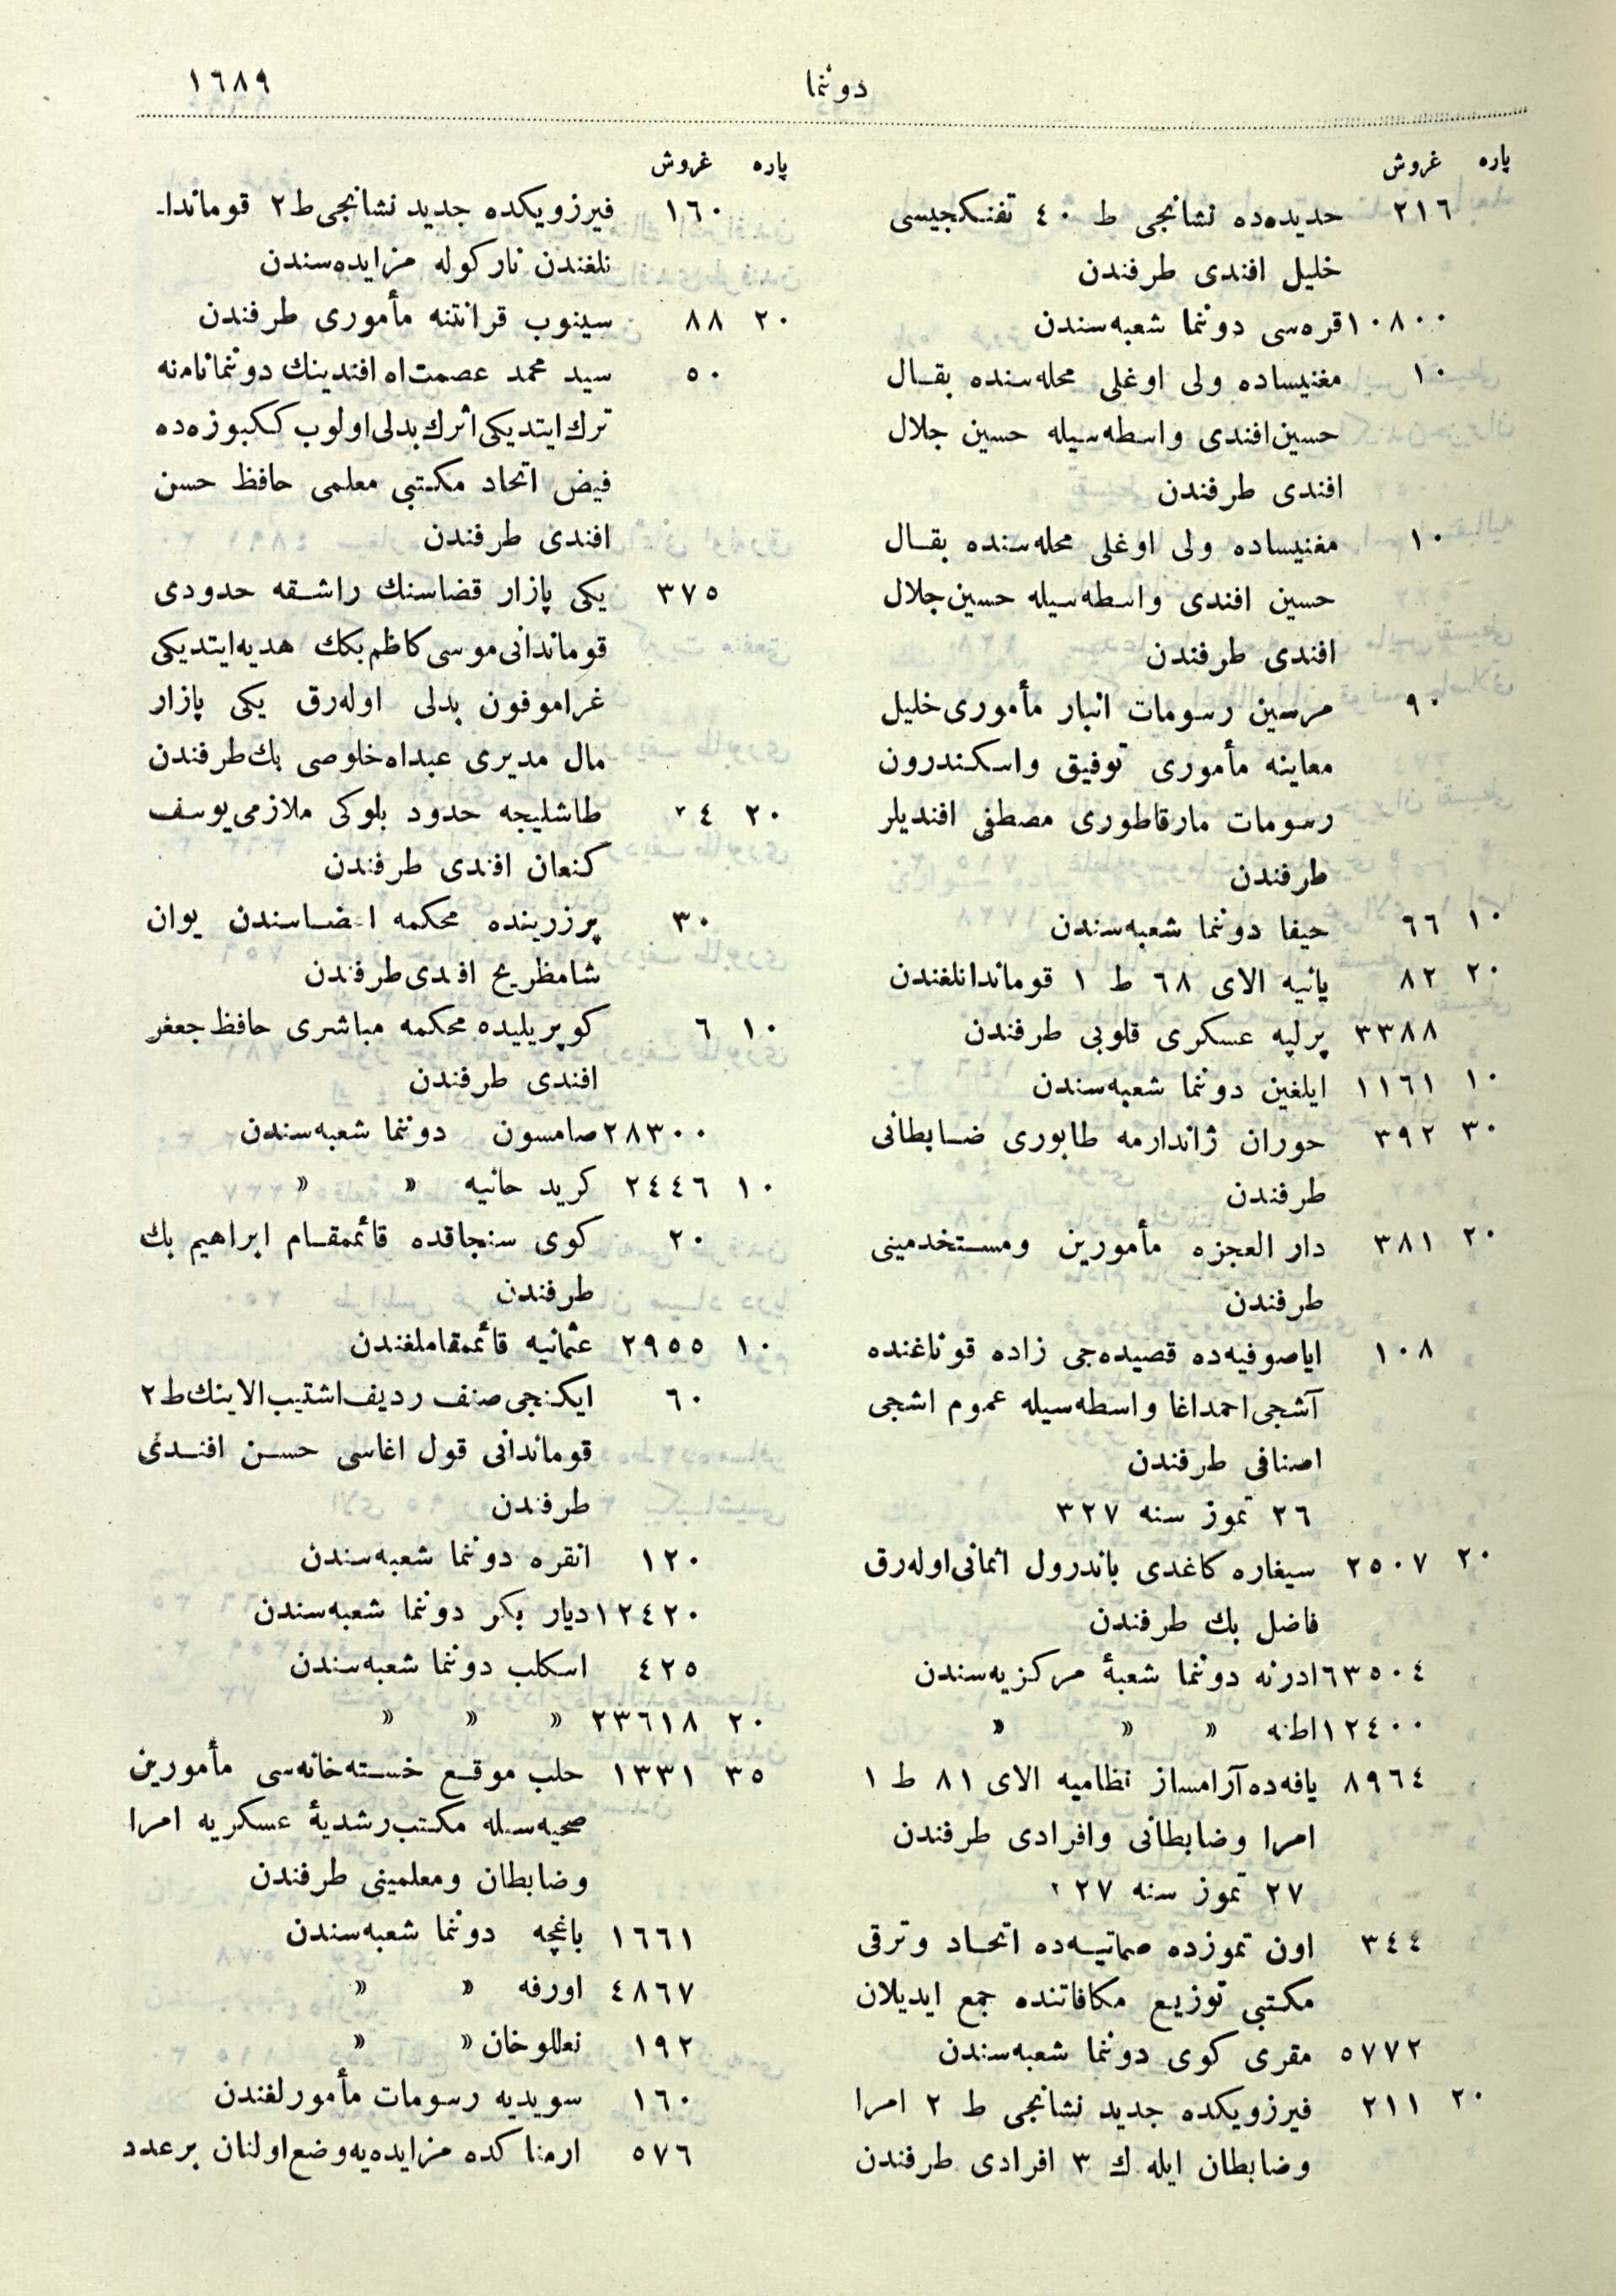 دوننما ١٦٨٩
پاره غروش
٢١٦ حديده‌ده نشانجى ط ٤٠ تفنكجيسى
خليل افندى طرفندن
١٠٨٠٠ قره‌سى دوننما شعبه‌سندن
١٠ مغنيساده ولى اوغلى محله‌سنده بقال
حسين افندى واسطه‌سيله حسين جلال
افندى طرفندن
١٠ مغنيساده ولى اوغلى محله‌سنده بقال
حسين افندى واسطه‌سيله حسين جلال
افندى طرفندن
٩٠ مرسين رسومات انبار مأمورى خليل
معاينه مأمورى توفيق واسكندرون
رسومات مارقاطورى مصطفى افنديلر
طرفندن
١٠ ٦٦ حيفا دوننما شعبه‌سندن
٢٠ ٨٢ يانيه الاى ٦٨ ط ١ قوماندانلغندن
٣٣٨٨ پرلپه عسكرى قلوبى طرفندن
١٠ ١١٦١ ايلغين دوننما شعبه‌سندن
٣٠ ٣٩٢ حوران ژاندارمه طابورى ضابطانى
طرفندن
٢٠ ٣٨١ دار العجزه مأمورين ومستخدمينى
طرفندن
١٠٨ اياصوفيه‌ده قصيده‌جى زاده قوناغنده
آشجى احمداغا واسطه‌سيله عموم اشجى
اصنافى طرفندن
٢٦ تموز سنه ٣٢٧
٢٠ ٢٥٠٧ سيغاره كاغدى باندرول اثمانى اوله‌رق
فاضل بك طرفندن
٦٣٥٠٤ ادرنه دوننما شعبهٔ مركزيه‌سندن
١٢٤٠٠ اطنه » » »
٨٩٦٤ يافه‌ده آرامساز نظاميه الاى ٨١ ط ١
امرا وضابطانى وافرادى طرفندن
٢٧ تموز سنه ٢٧
٣٤٤ اون تموزده صماتيه‌ده اتحاد وترقى
مكتبى توزيع مكافاتنده جمع ايديلان
٥٧٧٢ مقرى كوى دوننما شعبه‌سندن
٢٠ ٢١١ فيرزويكده جديد نشانجى ط ٢ امرا
وضابطان ايله ك ٣ افرادى طرفندن
پاره غروش
١٦٠ فيرزويكده جديد نشانجى ط ٢ قوماندا-
نلغندن ناركوله مزايده‌سندن
٢٠ ٨٨ سينوب قرانتنه مأمورى طرفندن
٥٠ سيد محمد عصمت‌اه افندينك دوننمانامنه
ترك ايتديكى اثرك بدلى اولوب ككبوزه‌ده
فيض اتحاد مكتبى معلمى حافظ حسن
افندى طرفندن
٣٧٥ يكى پازار قضاسنك راشقه حدودى
قوماندانى موسى كاظم بكك هديه ايتديكى
غراموفون بدلى اوله‌رق يكى پازار
مال مديرى عبداه خلوصى بك طرفندن
٢٠ ٤ طاشليجه حدود بلوكى ملازمى يوسف
كنعان افندى طرفندن
٣٠ پرزرينده محكمه اعضاسندن يوان
افندى طرفندن
١٠ ٦ كوپريليده محكمه مباشرى حافظ جعفر
افندى طرفندن
٢٨٣٠٠ صامسون دوننما شعبه‌سندن
١٠ ٢٤٤٦ كريد حانيه » »
٢٠ كوى سنجاقده قائممقام ابراهيم بك
طرفندن
١٠ ٢٩٥٥ عثمانيه قائممقاملغندن
٦٠ ايكنجى صنف رديف اشتيب الاينك ط ٢
قوماندانى قول اغاسى حسن افندى
طرفندن
١٢٠ انقره دوننما شعبه‌سندن
١٢٤٢٠ ديار بكر دوننما شعبه‌سندن
٤٢٥ اسكلب دوننما شعبه‌سندن
٢٠ ٢٣٦١٨ » » »
٣٥ ١٣٣١ حلب موقع خسته‌خانه‌سى مأمورين
صحيه‌سله مكتب رشديهٔ عسكريه امرا
وضابطان ومعلمينى طرفندن
١٦٦١ باغچه دوننما شعبه‌سندن
٤٨٦٧ اورفه » »
١٩٢ نعللوخان » »
١٦٠ سويديه رسومات مأمورلغندن
٥٧٦ ارمناكده مزايده‌يه وضع اولنان برعدد